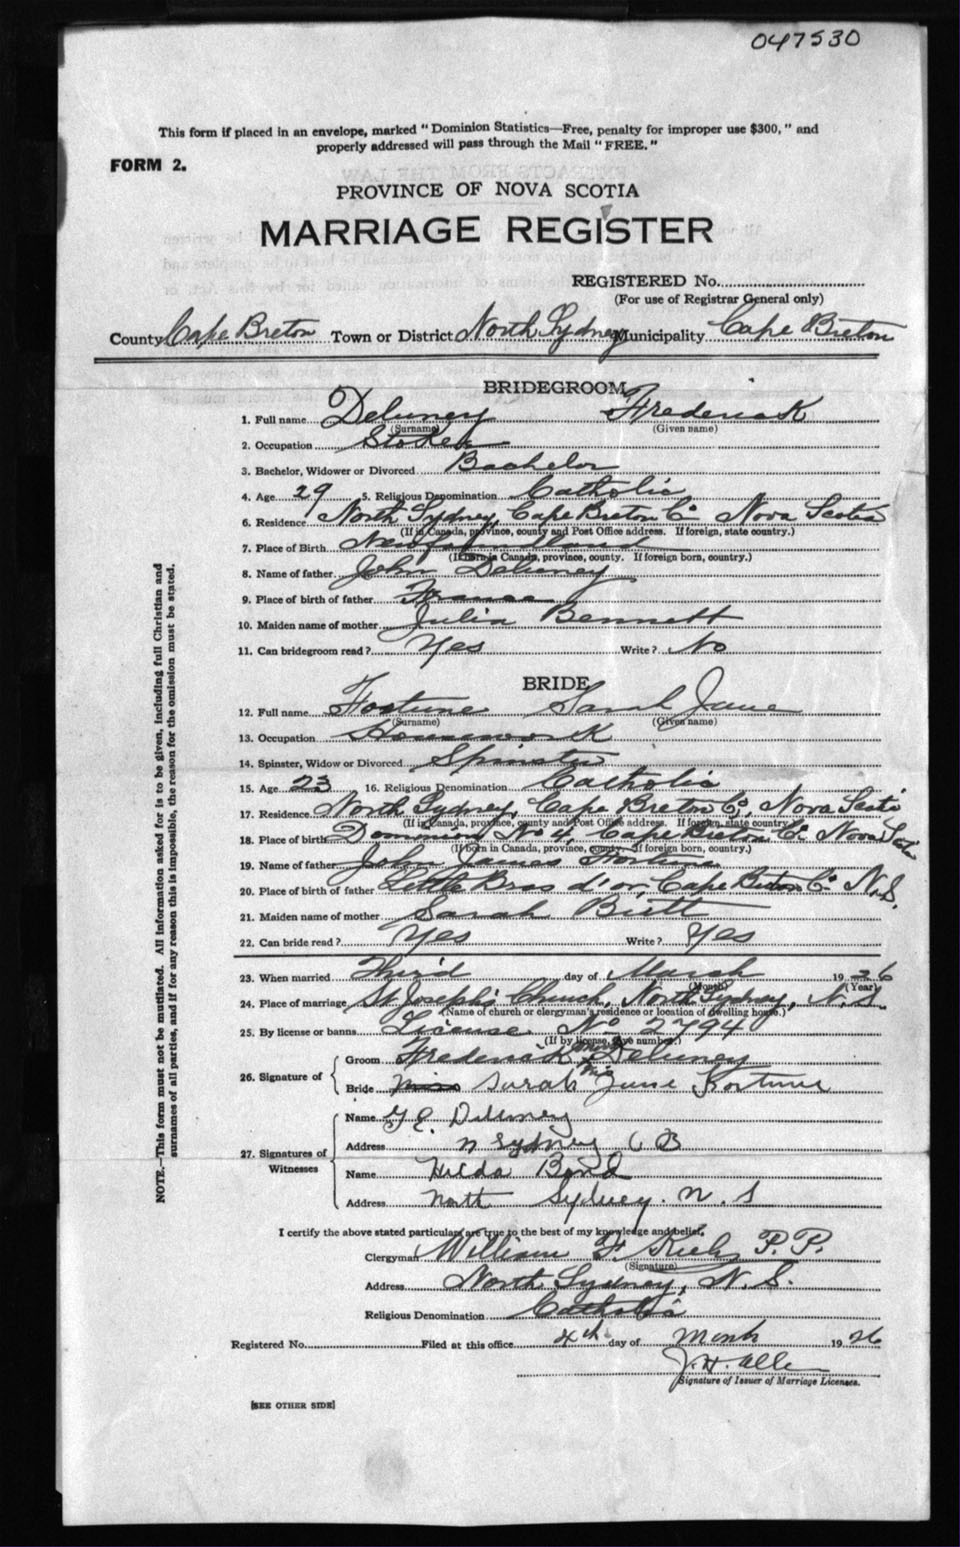 047530
This form if placed in an envelope, marked "Dominion Statistics—Free, penalty for improper use $300," and
properly addressed will pass through the Mail "FREE."
FORM 2.
PROVINCE OF NOVA SCOTIA
MARRIAGE REGISTER
REGISTERED No.
(For use of Registrar General only)
County Cape Breton Town or District North Sydney Municipality Cape Breton
BRIDEGROOM
1. Full name Deluney Frederick
(Surname) (Given name)
2. Occupation Stoker
3. Bachelor, Widower or Divorced Bachelor
4. Age 29 5. Religious Denomination Catholic
6. Residence North Sydney, Cape Breton Co. Nova Scotia
(If in Canada, province, county and Post Office address. If foreign, state country.)
7. Place of Birth Newfoundland
(If born in Canada, province, county. If foreign born, country.)
8. Name of father John Deluney
9. Place of birth of father France
10. Maiden name of mother Julia Bennett
11. Can bridegroom read? Yes Write? No
BRIDE
12. Full name Fortune Sarah Jane
(Surname) (Given name)
13. Occupation Housework
14. Spinster, Widow or Divorced Spinster
15. Age 23 16. Religious Denomination Catholic
17. Residence North Sydney, Cape Breton Co, Nova Scotia
(If in Canada, province, county and Post Office address. If foreign, state country.)
18. Place of birth Dominion No 4, Cape Breton Co. Nova Scotia
(If born in Canada, province, county. If foreign born, country.)
19. Name of father John James Fortune
20. Place of birth of father Little Bras d'or, Cape Breton Co. N.S.
21. Maiden name of mother Sarah Butt
22. Can bride read? Yes Write? Yes
23. When married Third day of March 1926
(Month) (Year)
24. Place of marriage St Joseph's Church, North Sydney, N.S.
(Name of church or clergyman's residence or location of dwelling house.)
25. By license or banns License No 2794
(If by license, give number.)
26. Signature of
Groom Frederick Deluney
Bride Miss Sarah Jane Fortune
27. Signatures of Witnesses
Name Deluney
Address N Sydney C B
Name Hilda Bond
Address North Sydney. N. S
I certify the above stated particulars are true to the best of my knowledge and belief.
Clergyman William F. P.P.
(Signature)
Address North Sydney, N.S.
Religious Denomination Catholic
Registered No. Filed at this office 4th day of March 1926
J. H.
Signature of Issuer of Marriage Licenses.
[SEE OTHER SIDE]
NOTE.—This form must not be mutilated. All information asked for is to be given, including full Christian and
surnames of all parties, and if for any reason this is impossible, the reason for the omission must be stated.